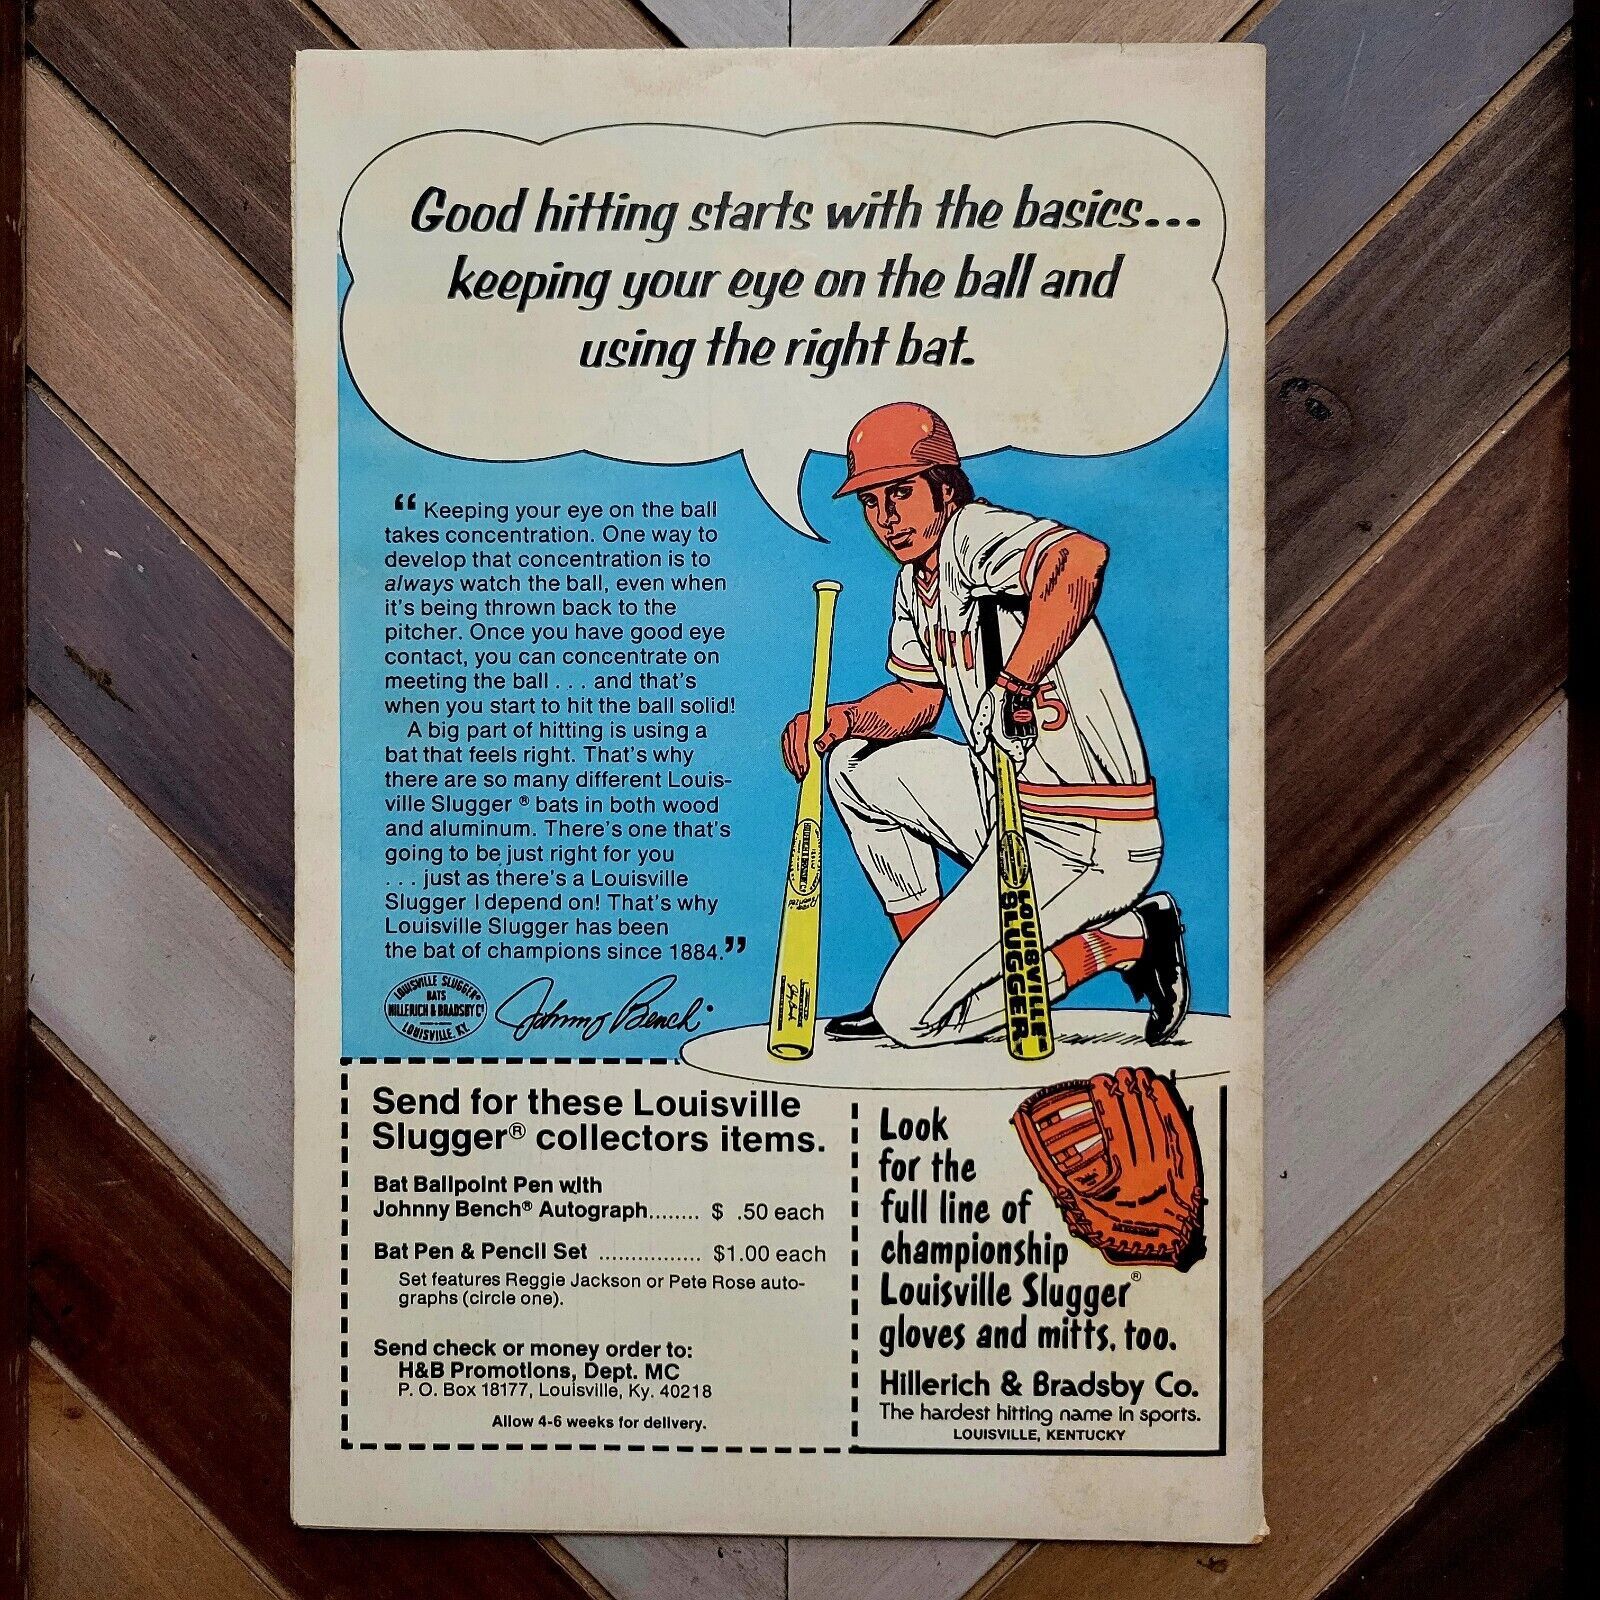 Good hitting starts with the basics...
keeping your eye on the ball and
using the right bat.
“Keeping your eye on the ball
takes concentration. One way to
develop that concentration is to
always watch the ball, even when
it's being thrown back to the
pitcher. Once you have good eye
contact, you can concentrate on
meeting the ball . . . and that's
when you start to hit the ball solid!
A big part of hitting is using a
bat that feels right. That's why
there are so many different Louis-
ville Slugger® bats in both wood
and aluminum. There's one that's
going to be just right for you
. . . just as there's a Louisville
Slugger I depend on! That's why
Louisville Slugger has been
the bat of champions since 1884.”
LOUISVILLE SLUGGER®
BATS
HILLERICH & BRADSBY Cº
LOUISVILLE, KY.
Johnny Bench
5
LOUISVILLE
SLUGGER
Send for these Louisville
Slugger® collectors items.
Bat Ballpoint Pen with
Johnny Bench® Autograph........ $ .50 each
Bat Pen & Pencil Set ................ $1.00 each
Set features Reggie Jackson or Pete Rose auto-
graphs (circle one).
Send check or money order to:
H&B Promotions, Dept. MC
P. O. Box 18177, Louisville, Ky. 40218
Allow 4-6 weeks for delivery.
Look
for the
full line of
championship
Louisville Slugger®
gloves and mitts, too.
Hillerich & Bradsby Co.
The hardest hitting name in sports.
LOUISVILLE, KENTUCKY